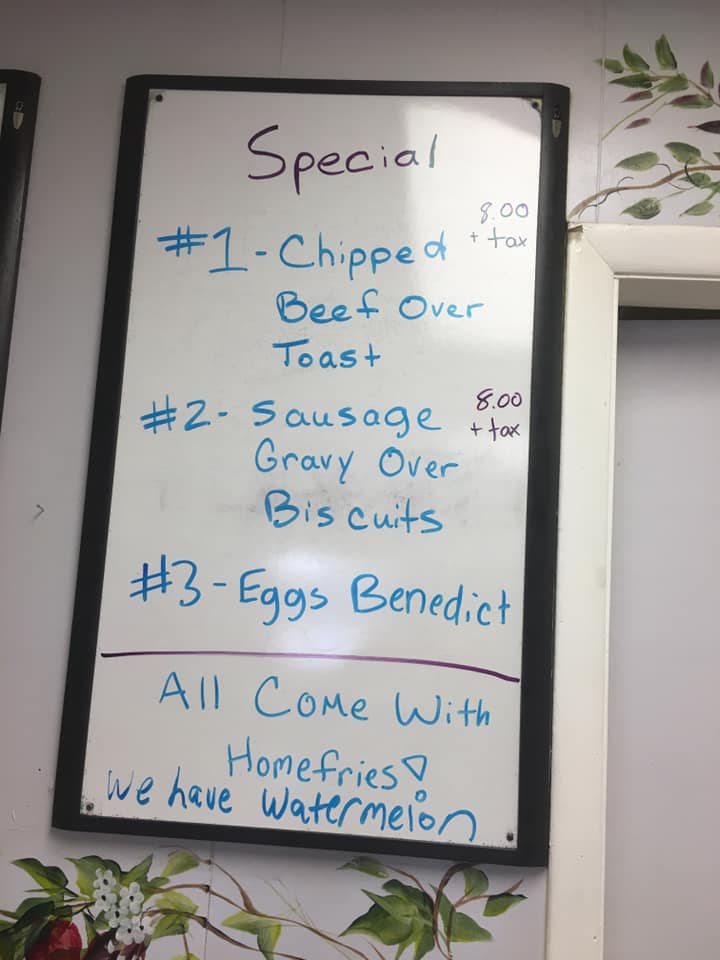 Special
8.00
#1 - Chipped + tax
Beef Over
Toast
8.00
#2 - Sausage + tax
Gravy Over
Biscuits
#3 - Eggs Benedict
All Come With
Homefries!
We have Watermelon